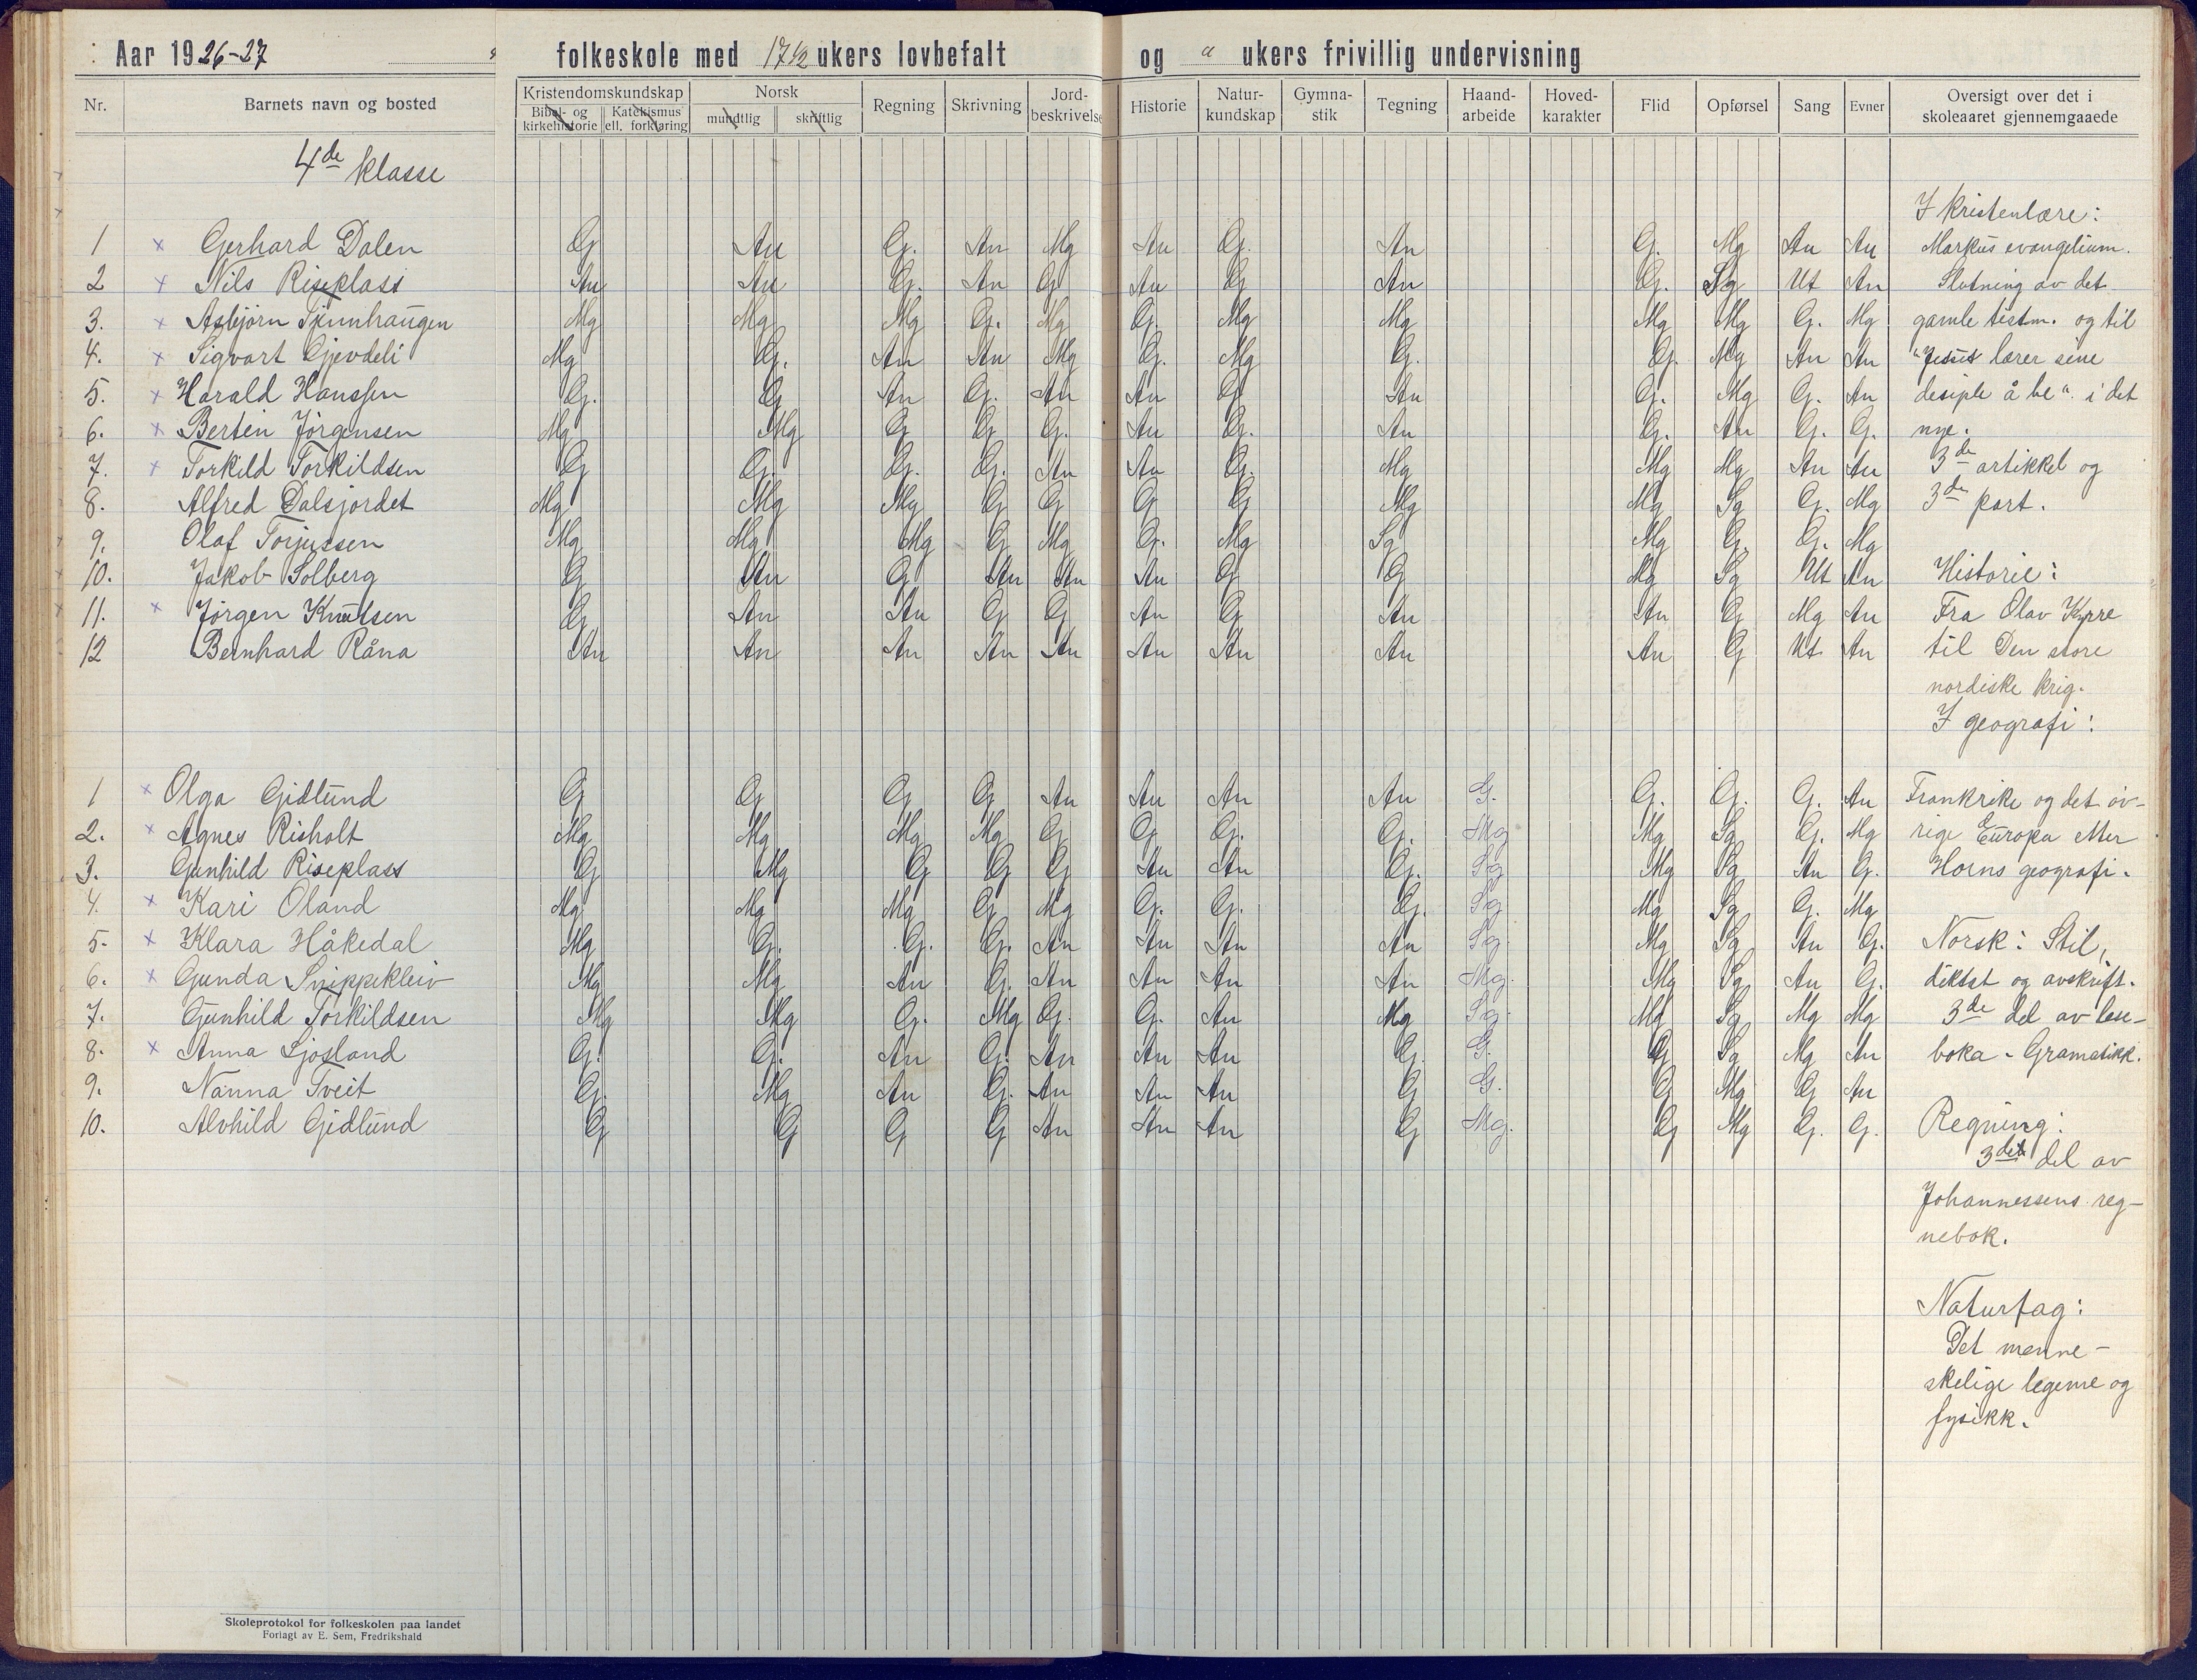 Aar 1926-27 folkeskole med 17½ ukers lovbefalt og " ukers frivillig undervisning
Nr. Barnets navn og bosted Kristendomskundskap Bibel- og kirkehistorie Katekismus ell. forklaring Norsk mundtlig skriftlig Regning Skrivning Jord-beskrivelse Historie Natur-kundskap Gymna-stik Tegning Haand-arbeide Hoved-karakter Flid Opførsel Sang Evner Oversigt over det i skoleaaret gjennemgaaede
4de klasse
I kristenlære:
1 x Gerhard Dalen G An G. An Mg An G. An G. Mg An An Markus evangelium.
2 x Nils Riseplass An An G. An G An G An G. Sg Ut An Slutning av det
3. x Asbjørn Tjennhaugen Mg Mg Mg G. Mg G. Mg Mg Mg Mg G. Mg gamle testm. og til
4. x Sigvart Gjevdeli Mg G. An An Mg G. Mg G. G. Mg An An "Jesus lærer sine
5. x Harald Hanssen G. G An G. An An G An G. Mg G. An desiple å be". i det
6. x Bertin Jörgensen Mg Mg G G G. An G. An G. An G. G. nye.
7. x Torkild Torkildsen G G. G. G. An An G. Mg Mg Mg An An 3de artikkel og
8. Alfred Dalsjordet Mg Mg Mg G G G G Mg Mg Sg G. Mg 3de part.
9. Olaf Torjussen Mg Mg Mg G Mg G. Mg Sg Mg G. G. Mg
10. Jakob Solberg G An G An An An G G Mg Sg Ut An Historie:
11. x Jörgen Knutsen G An An G G An G An An G Mg An Fra Olav Kyrre
12 Bernhard Råna An An An An An An An An An G Ut An til Den store
nordiske krig.
I geografi:
1 x Olga Gidlund G G G G An An An An G. G. G. G. An Frankrike og det öv-
2. x Agnes Risholt Mg Mg Mg Mg G G G. G. Mg Mg Sg G. Mg rige Europa etter
3. Gunhild Riseplass G Mg G G G An An G. Sg Mg Sg An G. Horns geografi.
4. x Kari Öland Mg Mg Mg G Mg G. G. G. Sg Mg Sg G. Mg
5. x Klara Håkedal Mg G. G. G. An An An An Sg Mg Sg An G. Norsk: Stil,
6. x Gunda Snippekleiv Mg Mg An G. An An An An Mg. Mg Sg An G. diktat og avskrift.
7. Gunhild Torkildsen Mg Mg G. Mg G. G. An Mg Sg. Md Sg Mg Mg 3de del av lese-
8. x Anna Sjösland G. G. An G. An An An G. G. G Sg Mg An boka. Gramatikk.
9. Nanna Tveit G. Mg An G. An An An G G. G Mg G An
10. Alvhild Gidlund G G G G An An An G Mg. G Mg G. G. Regning:
3die del av
Johannessens reg-
nebok.
Naturfag:
Det menne-
skelige legeme og
fysikk.
Skoleprotokol for folkeskolen paa landet
Forlagt av E. Sem, Fredrikshald